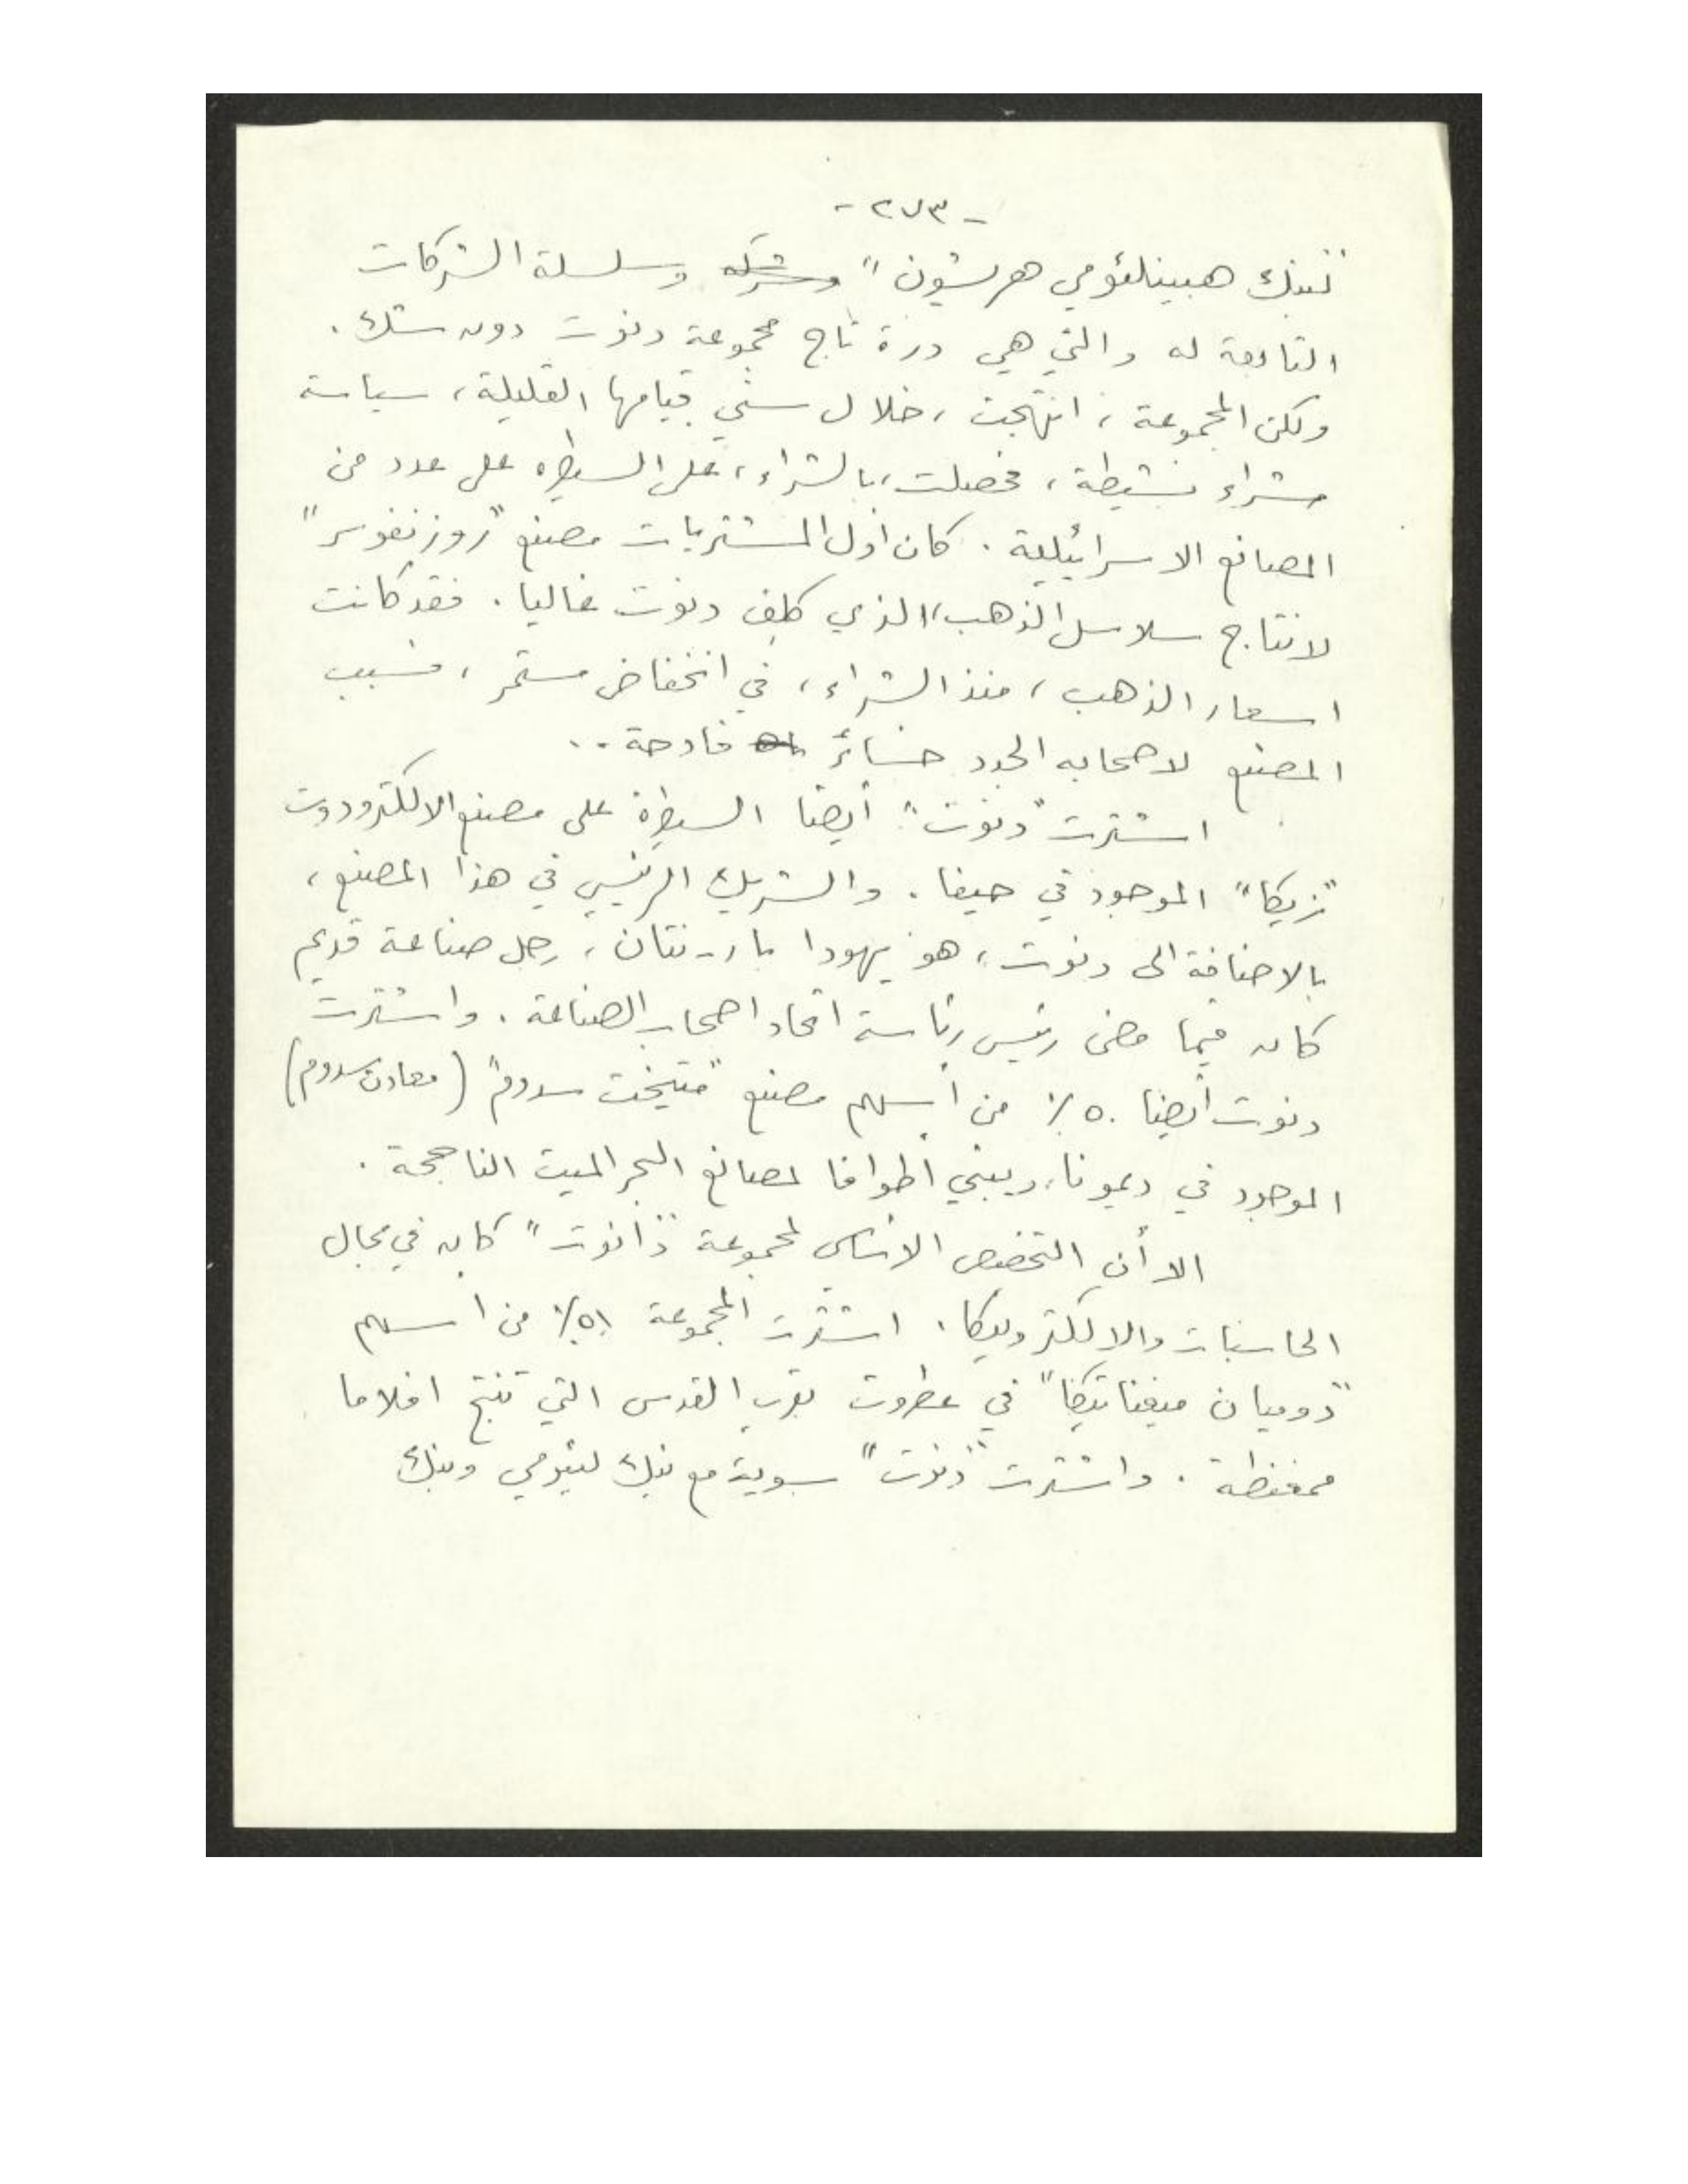 - ٢٧٣ -
"بنك هبينلئومي هرشون" وسلسلة الشركات
التابعة له والتي هي درة تاج مجموعة دنوت دون شك.
ولكن المجموعة، انتهجت، خلال سني قيامها القليلة، سياسة
شراء نشيطة، فحصلت، بالشراء، على السيطره على عدد من
المصانع الاسرائيلية. كان اول المشتريات مصنع "روزنفوسر"
لانتاج سلاسل الذهب، الذي كلف دنوت غاليا. فقد كانت
اسعار الذهب، منذ الشراء، في انخفاض مستمر، فسبب
المصنع لاصحابه الجدد خسائر فادحة..
اشترت "دنوت" أيضا السيطرة على مصنع الالكترودوت
"زيكا" الموجود في حيفا. والشريك الرئيسي في هذا المصنع،
بالاضافة الى دنوت، هو يهودا بار-نتان، رجل صناعة قديم
كان فيما مضى رئيس رئاسة اتحاد اصحاب الصناعة. واشترت
دنوت أيضا ٥٠٪ من أسهم مصنع "متيخت سدوم" (معادن سدوم)
الموجود في ديمونا، ويبني أطوافا لمصانع البحر الميت الناجحة.
الا أن التخصص الاساسي لمجموعة "دانوت" كان في مجال
الحاسبات والالكترونيكا. اشترت المجموعة ٥١٪ من اسهم
"دوميان ميغناتيكا" في عطروت بقرب القدس التي تنتج افلاما
ممغنطة. واشترت "دنوت" سوية مع بنك ليئومي وبنك